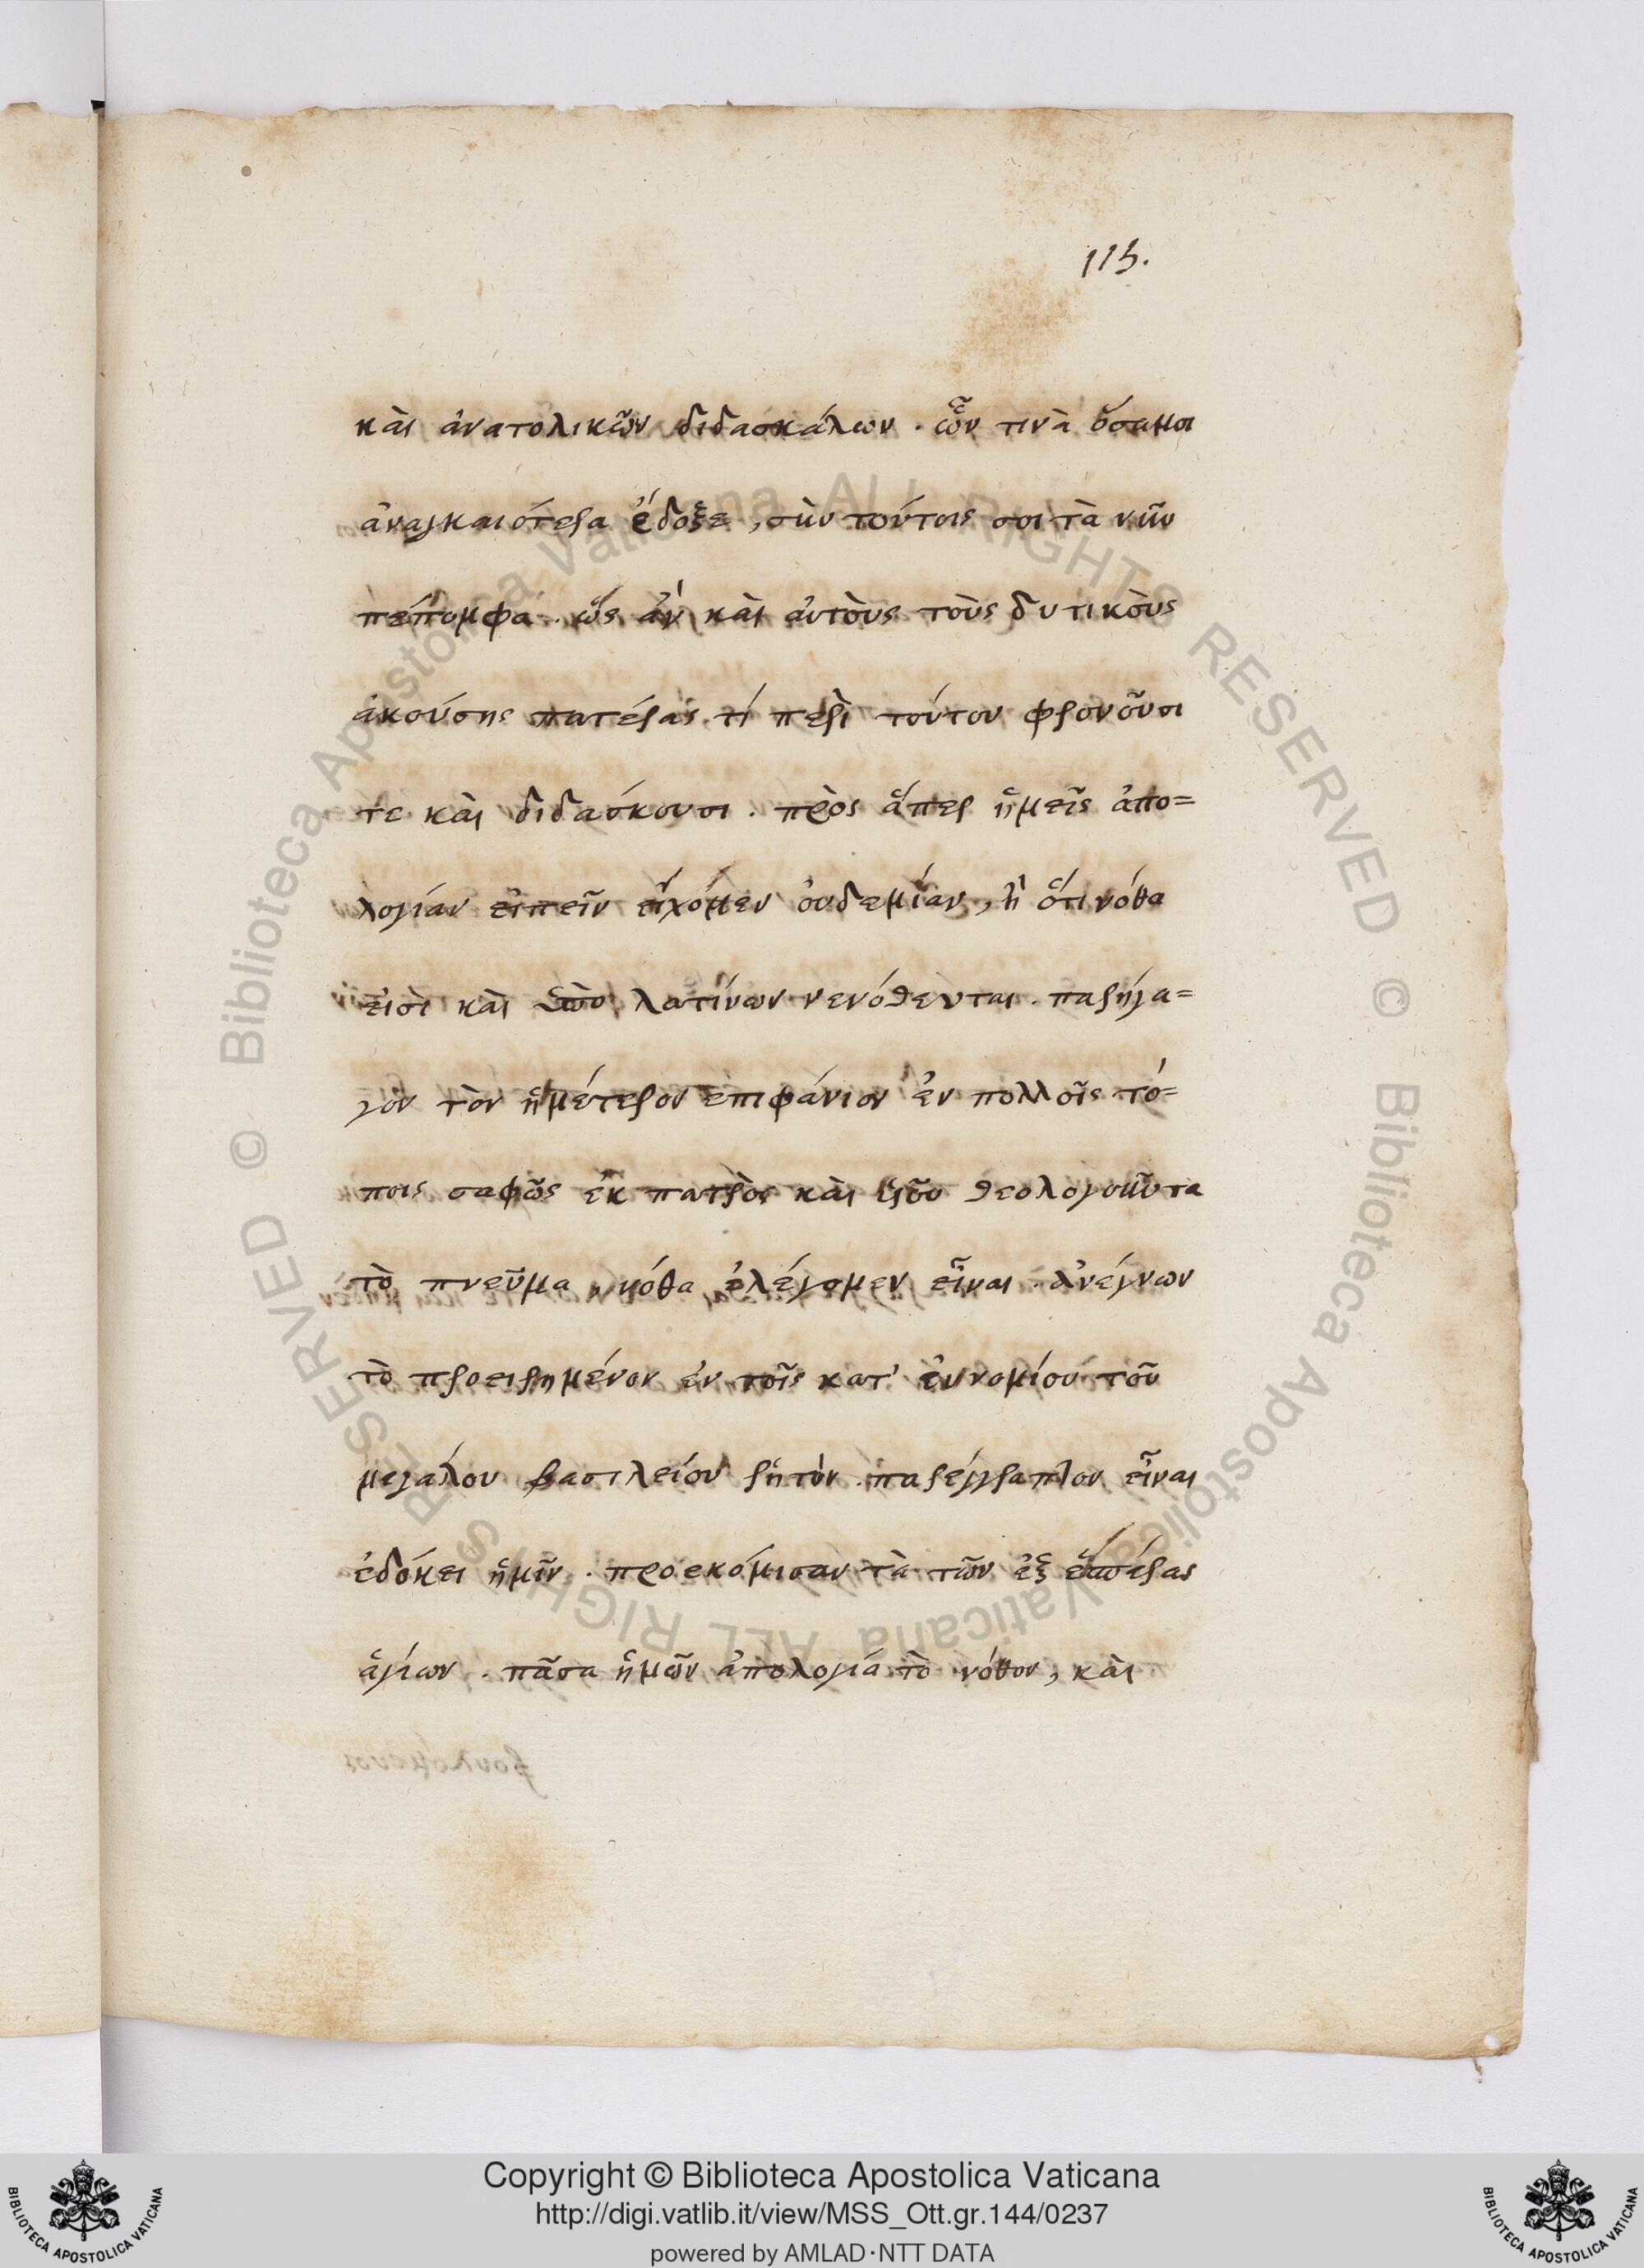 115.
καὶ ἀνατολικῶν διδασκάλων . ὧν τινὰ ὅσαμοι
ἀναγκαιότερα ἔδοξε, σὺν τούτοις σοι τὰ νῦν
πέπομφα . ὡς ἂν καὶ αὐτοὺς τοὺς δυτικοὺς
ἀκούσῃς πατέρας τί περὶ τούτου φρονοῦσι
τε καὶ διδάσκουσι . πρὸς ἅπερ ἡμεῖς ἀπο=
λογίαν εἰπεῖν εἴχομεν οὐδεμίαν, ἢ ὅτι νόθα
εἰσὶ καὶ ὑπὸ λατίνων νενόθευται . παρήγα=
γον τὸν ἡμέτερον ἐπιφάνιον ἐν πολλοῖς τό=
ποις σαφῶς ἐκ πατρὸς καὶ υἱοῦ θεολογοῦντα
τὸ πνεῦμα, νόθα ἐλέγομεν εἶναι . ἀνέγνων
τὸ προειρημένον ἐν τοῖς κατ' εὐνομίου τοῦ
μεγάλου βασιλείου ῥητόν . παρέγγραπτον εἶναι
ἐδόκει ἡμῖν . προεκόμισαν τὰ τῶν ἐξ ἑσπέρας
ἁγίων . πᾶσα ἡμῶν ἀπολογία τὸ νόθον, καὶ
Copyright © Biblioteca Apostolica Vaticana
http://digi.vatlib.it/view/MSS_Ott.gr.144/0237
powered by AMLAD·NTT DATA
© Biblioteca Apostolica Vaticana ALL RIGHTS RESERVED © Biblioteca Apostolica Vaticana ALL RIGHTS RESERVED
BIBLIOTECA APOSTOLICA VATICANA
BIBLIOTECA APOSTOLICA VATICANA